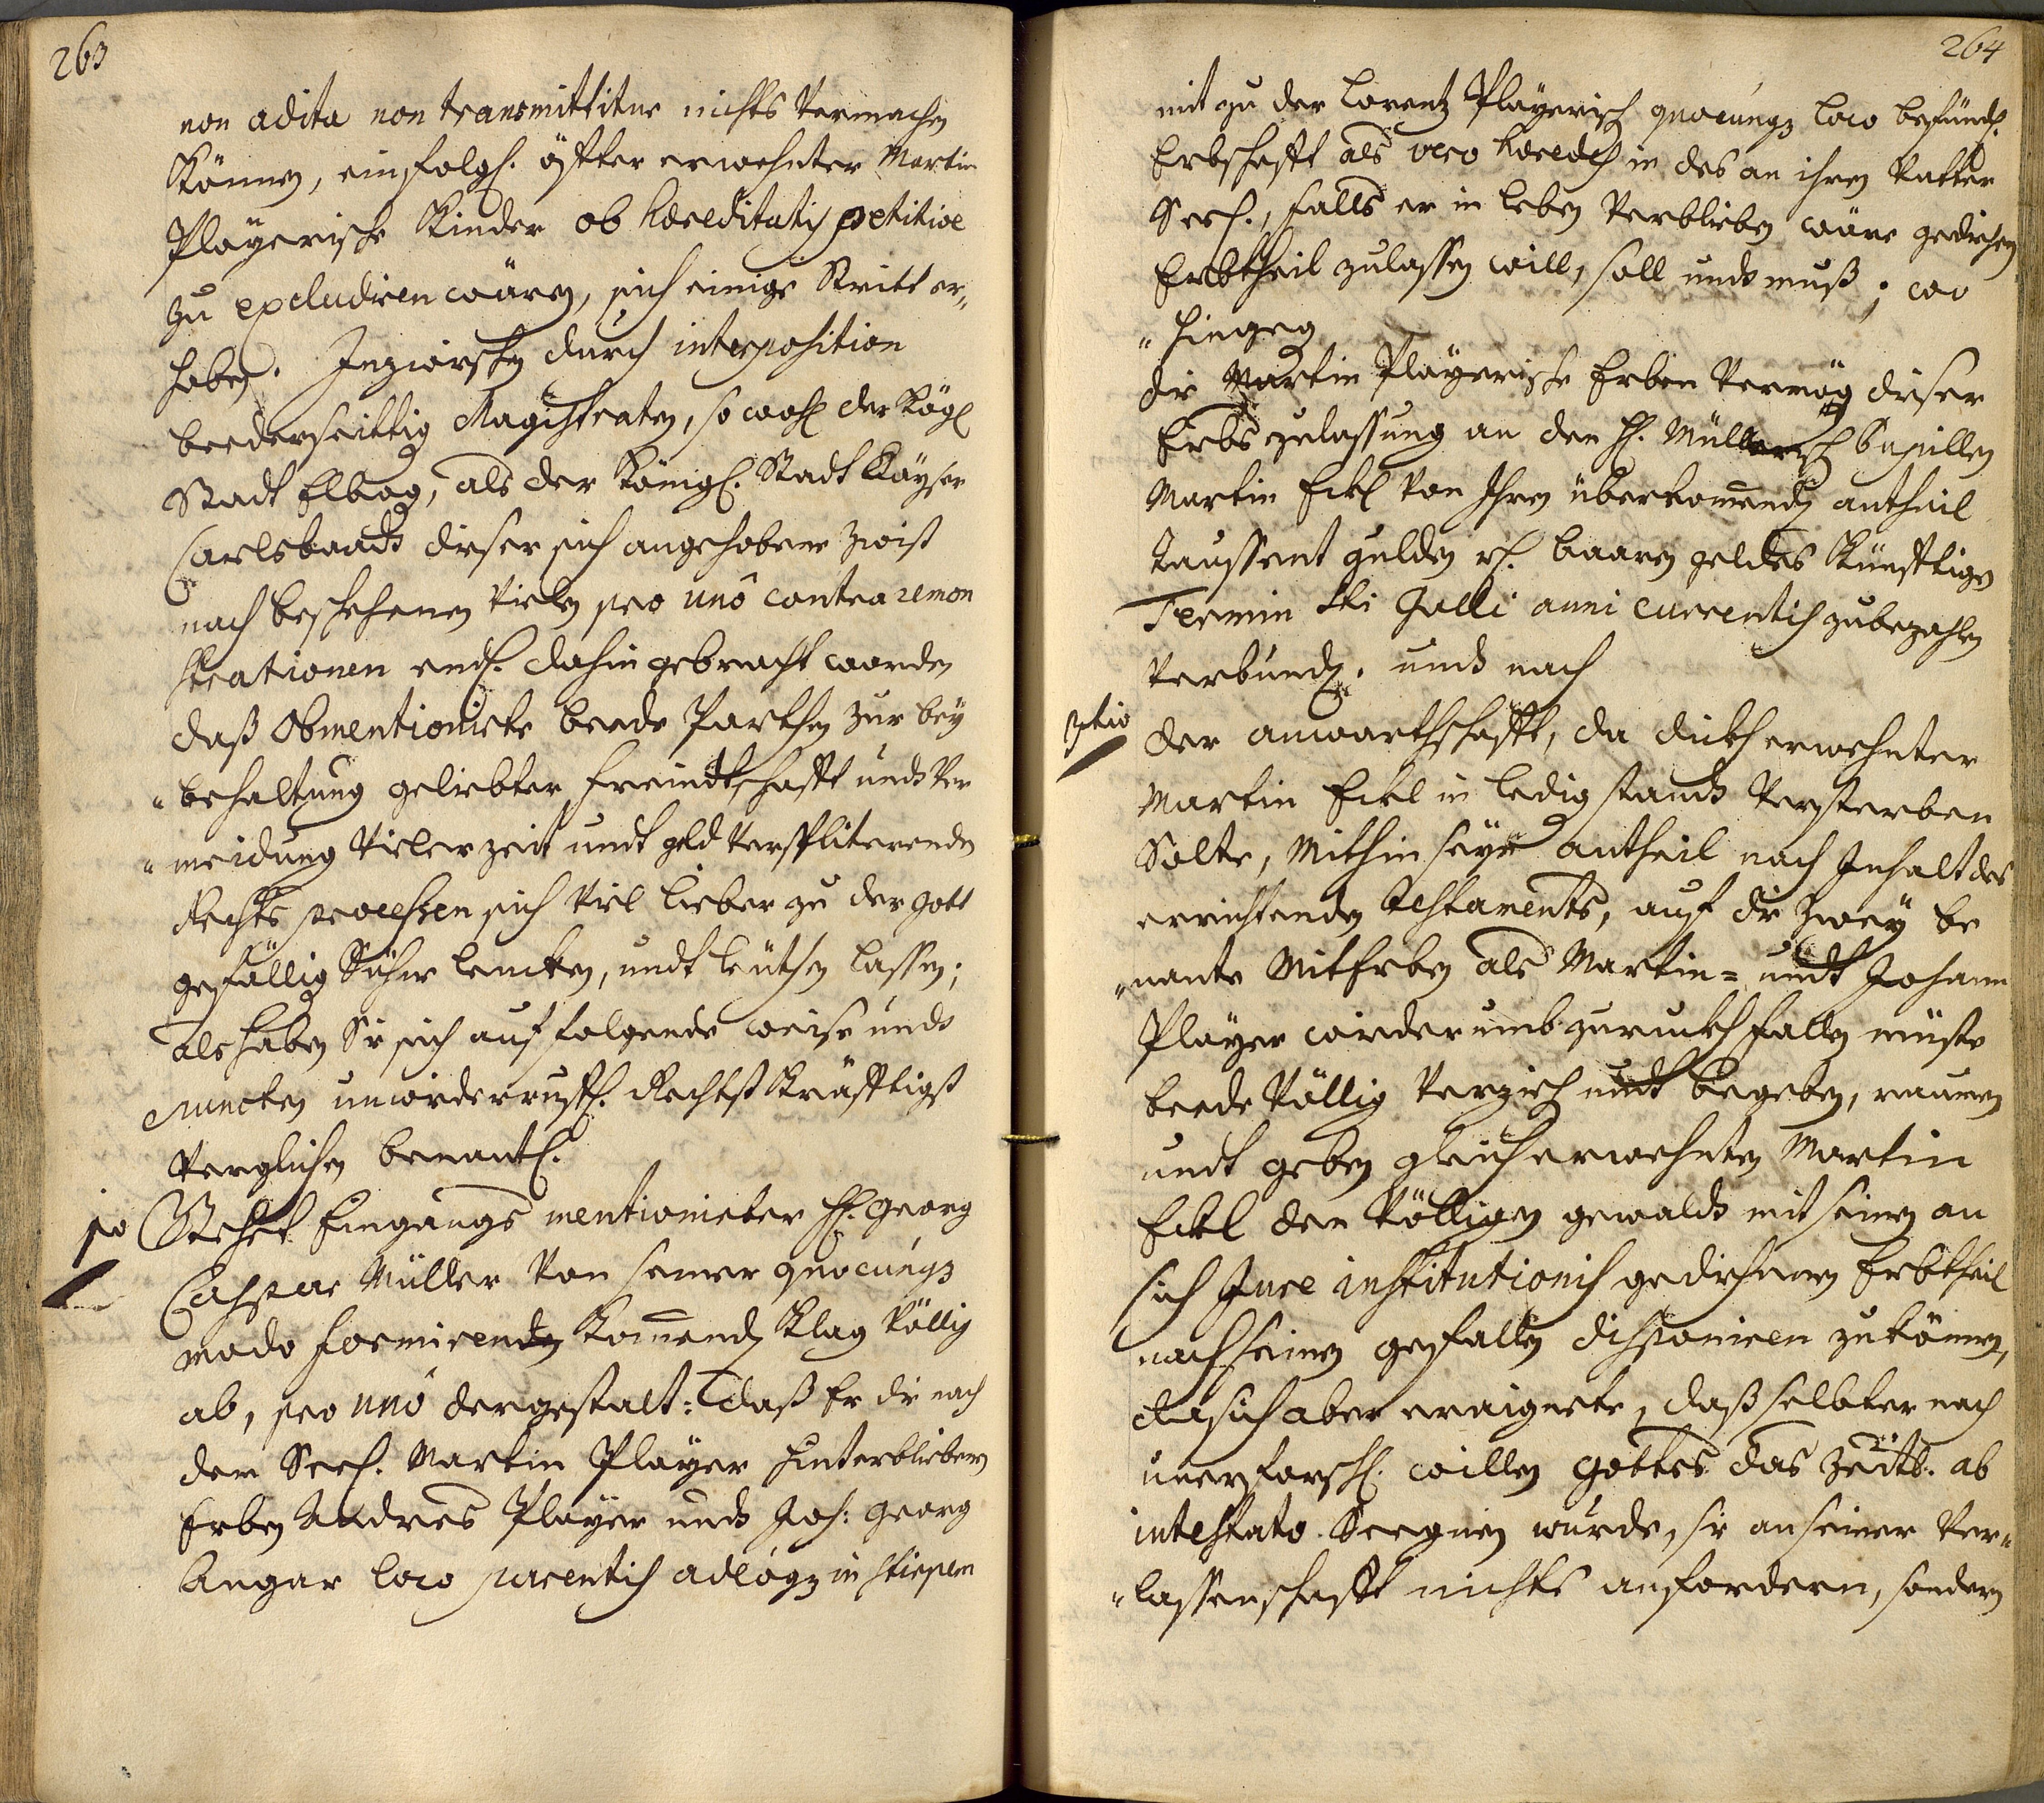 263
non adita non transmittitur nichts vermachen
Können, einfolgl. öffter erwehnter Martin
Playerische Kinder ob hæreditatis petitioe
zu excludiren wären, sich einige Stritt er„
hoben. Inzwischen durch interposition
beederseittig Magistraten, so wohl der Kögl
Stadt Elbog, als der Königl. Stadt Kayser
Carlsbaads dieser sich angehobene Zwist
nach beschehenen vielen pro unô contra remon
strationen endl. dahin gebracht worden
daß Obmentionirte beede Parthen zur bey
„behaltung geliebter freindtschafft undt ver
„meidung vieler zeit undt geld versplitterende
Rechts processen sich viel lieber zu der gott
gefällig Sühne lencken, undt leuthen lassen;
als haben Sie sich auf folgende weise undt
puncten unwiderruffl. Rechtst kräfftigst
verglichen benantl.
po Stehet Eingangs mentionirter H. Georg
Caspar Müller von seiner quocunqz
modo formirenden kommend Klag völlig
ab, pro unô dergestalt: daß Er die nach
dem Seel. Martin Player hinterblieben
Erben Andres Player undt Joh: Georg
Angar loco parentis adeoqz in stirpem
264
mit zu der Lorentz Playerisch quocunqz loco befindl.
Erbschafft als vero hæredes in das an ihren Vatter
Seel., falls er in leben verblieben wäre gediehen
Erbtheil zulassen will, soll undt muß; wo
„hingegen
die Martin Playerische Erben vermög dieser
Erbs zulassung an den H. Müllerisch Pupillen
Martin Eckl von Ihren überkommend antheil
Taussent gulden rh. baaren geldes künfftigen
Termin Sti Galli anni currentis zubezahlen
verbundl. undt nach
ztio der anwarthschafft, da dickh erwehnter
Martin Eckl in ledig standt versterben
Solte, mithin seyn antheil nach Inhalt des
errichtenden testaments, auf die zwey be
„nante Mitherben als Martin= undt Johann
Player wiederumb zuruckh fallen müste
beede völlig verzieh undt begeben, raumen
undt geben gleich erwehnten Martin
Eckl den völligen gewaldt mit seinen an
sich Jure institutionis gediehenen Erbtheil
nach seinen gefallen disponiren zu können,
da sich aber eraignete, daß selbter nach
unerforschl. willen gottes das Zeitl. ab
intestato Seegnen wurde, sie an seiner Ver„
„lassenschafft nichts anfordern, sondern